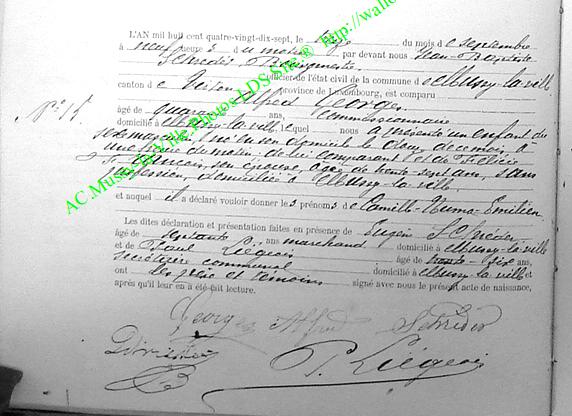 L'AN mil huit cent quatre-vingt-dix-sept, le du mois de septembre
à neuf heures du matin par devant nous Jean Baptiste
officier de l'état civil de la commune de Mussy-la-ville
canton de Virton province de Luxembourg, est comparu
Alfred Georges
N° 15.
âgé de quarante ans, commissionnaire
domicilié à Mussy-la-ville, lequel nous a présenté un enfant du
sexe masculin, né en son domicile le deux de ce mois, à
une heure du matin, de lui comparant et de
son épouse, âgée de trente-sept ans, sans
profession, domiciliée à Mussy-la-ville.
et auquel il a déclaré vouloir donner les prénoms de Camille-Numa-Emilien
Les dites déclaration et présentation faites en présence de Eugène Schréder
âgé de septante ans marchand domicilié à Mussy-la-ville
et de Paul Liégeois âgé de ans,
secrétaire communal domicilié à Mussy-la-ville et
ont les père et témoins signé avec nous le présent acte de naissance,
après qu'il leur en a été fait lecture.
Georges Alfred Schréder
P. Liégeois
AC.Mussy-la-Ville.Photos LDS Site ® http://wallo